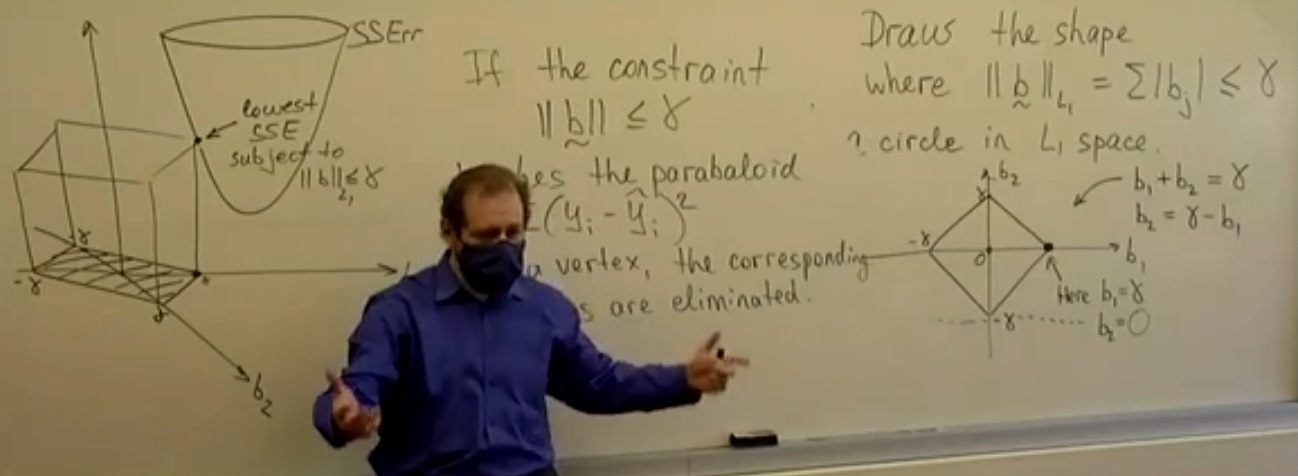 SSErr
lowest
SSE
subject to
||b||_L₁ ≤ γ
γ
-γ
γ
b₂
If the constraint
||b̰|| ≤ γ
the parabaloid
(yᵢ - ŷᵢ)²
a vertex, the corresponding
are eliminated.
Draws the shape
where ||b̰||_L₁ = Σ|bⱼ| ≤ γ
circle in L₁ space.
b₂
γ
b₁ + b₂ = γ
b₂ = γ - b₁
-γ
0
b₁
Here b₁=γ
b₂=0
-γ